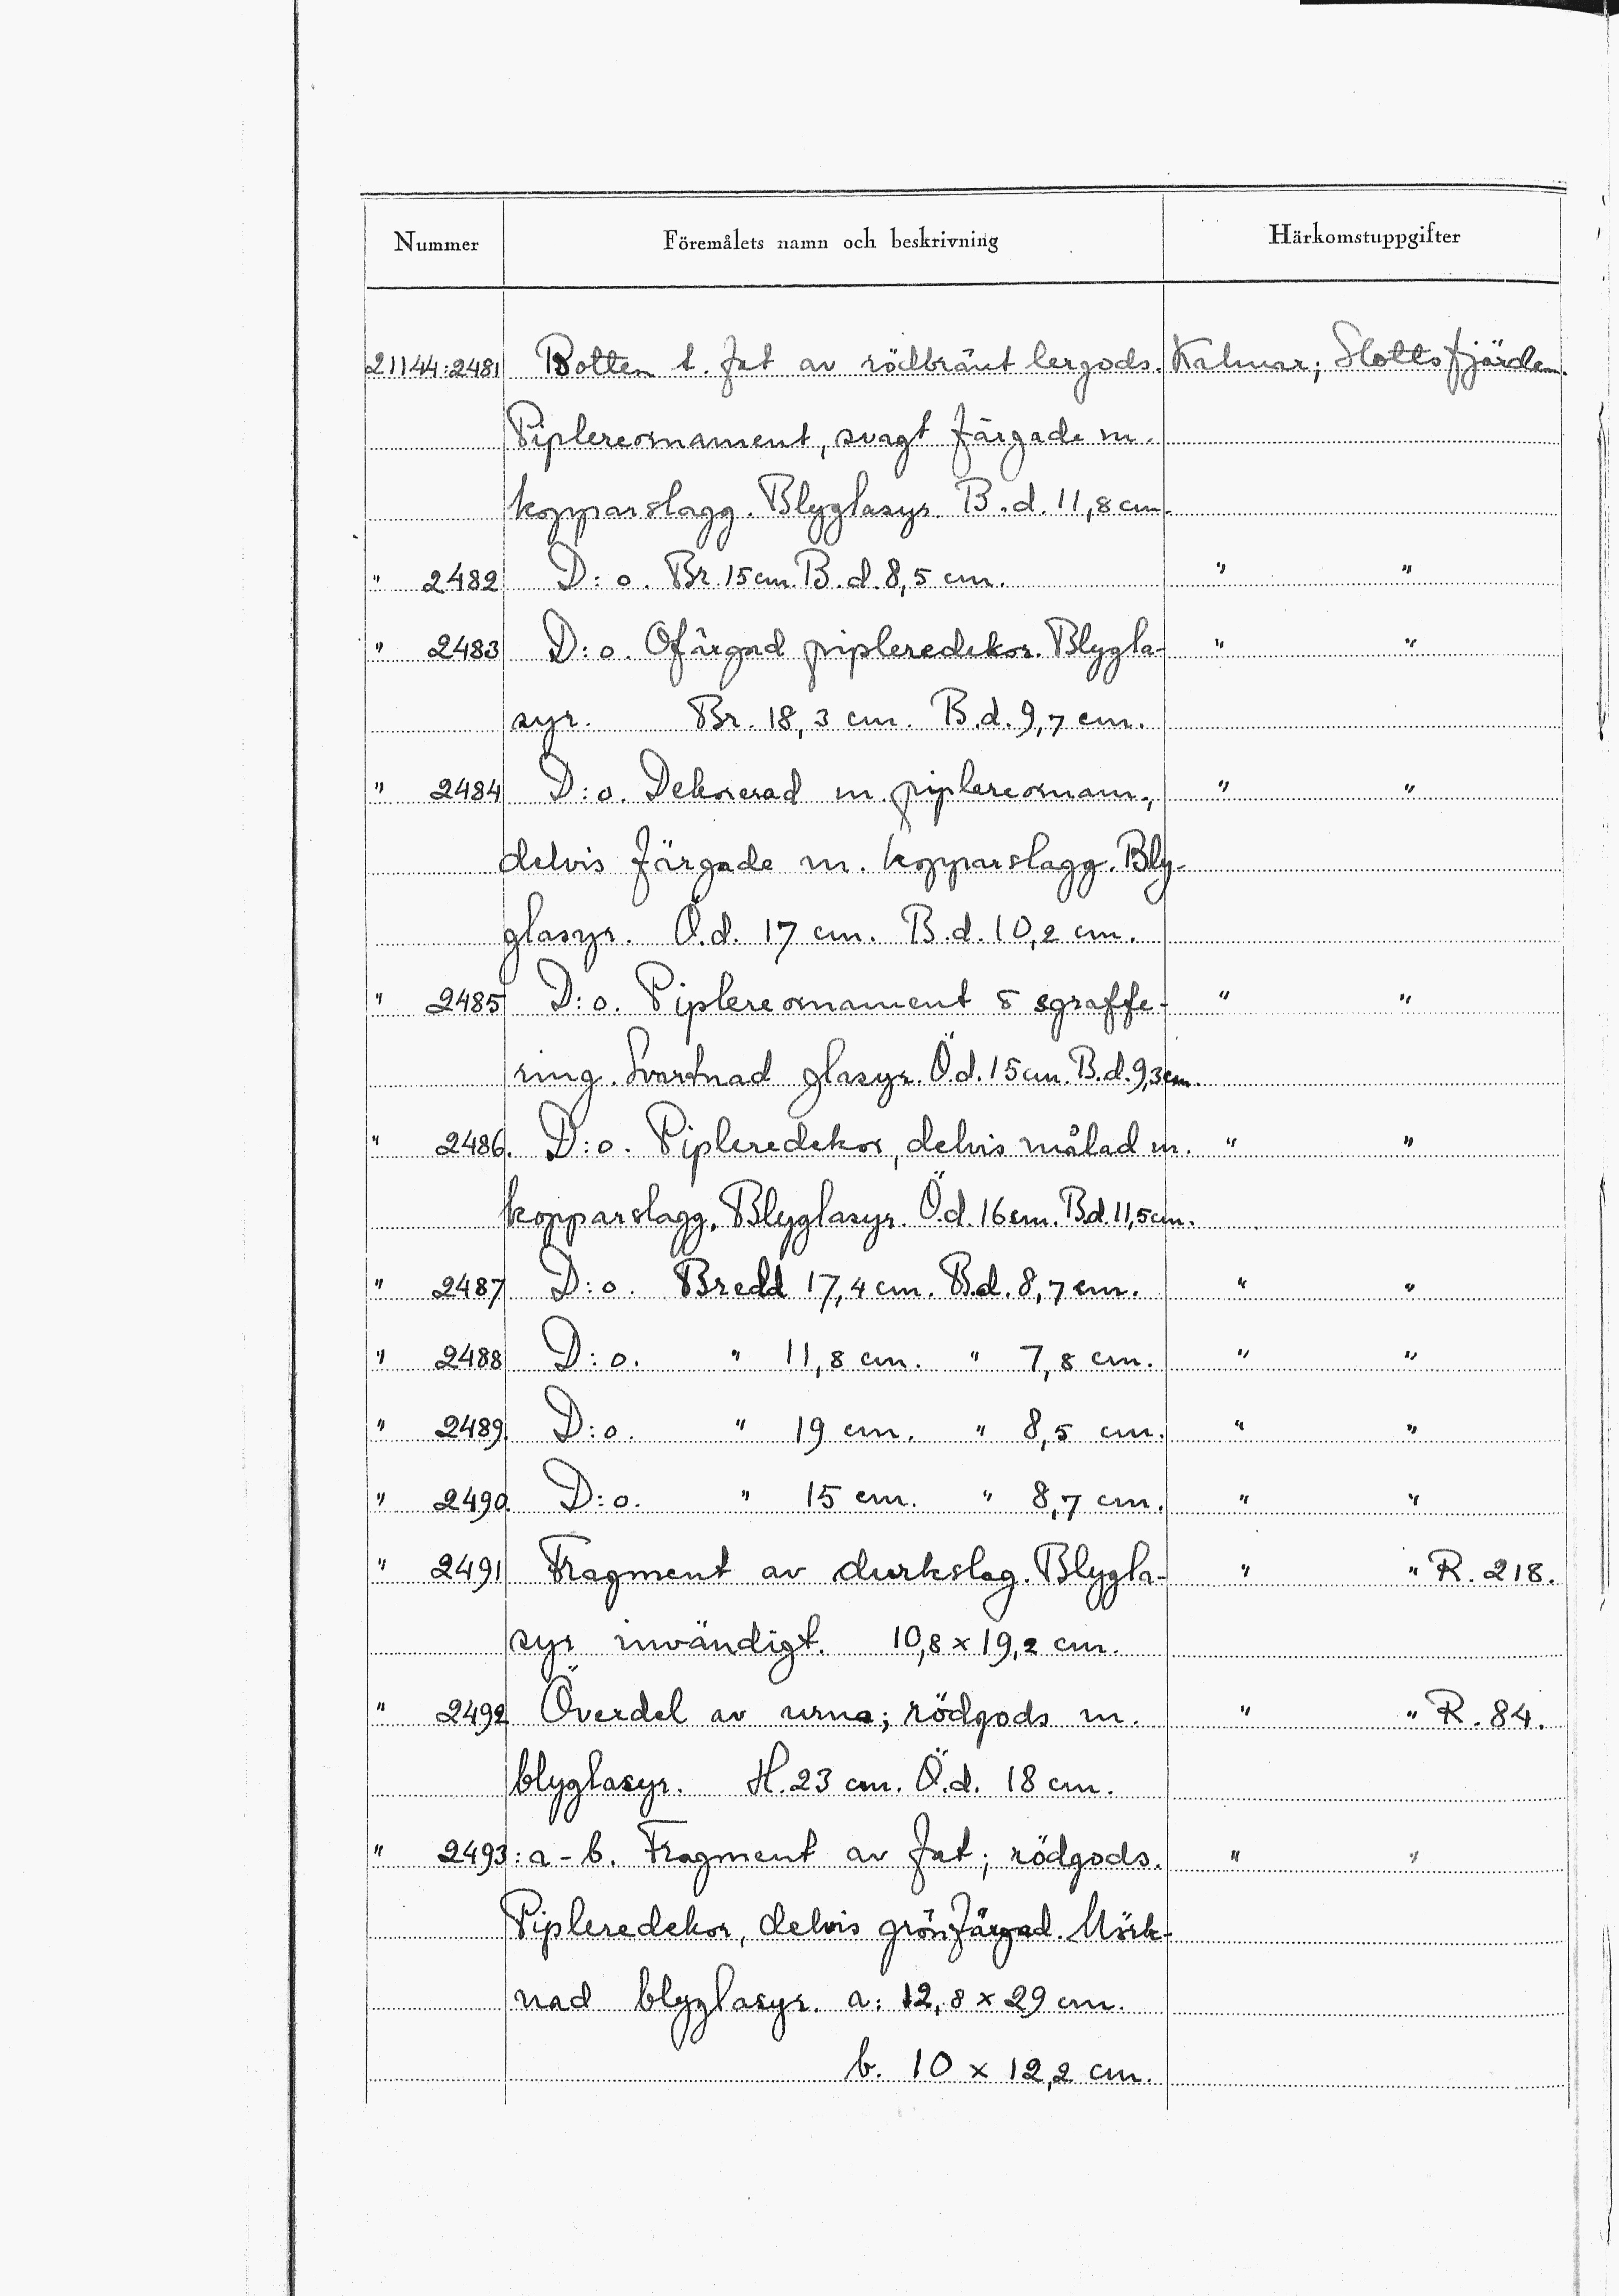 Nummer Föremålets namn och beskrivning Härkomstuppgifter
21144:2481 Botten t. fat av rödbränt lergods. Kalmar; Slottsfjärden.
Piplereornament, svagt färgade m.
kopparslagg. Blyglasyr. B.d. 11,8 cm.
" 2482 D:o. Br. 15 cm. B.d. 8,5 cm. " "
" 2483 D:o. Ofärgad pipleredekor. Blygla- " "
syr. Br. 18,3 cm. B.d. 9,7 cm.
" 2484 D:o. Dekorerad m. piplereornam., " "
delvis färgade m. kopparslagg. Bly-
glasyr. Ö.d. 17 cm. B.d. 10,2 cm.
" 2485 D:o. Piplereornament & sgraffe- " "
ring. Svartnad glasyr. Ö.d. 15 cm. B.d. 9,3 cm.
" 2486. D:o. Pipleredekor, delvis målad m. " "
kopparslagg. Blyglasyr. Ö.d. 16 cm. B.d. 11,5 cm.
" 2487 D:o. Bredd 17,4 cm. B.d. 8,7 cm. " "
" 2488 D:o. " 11,8 cm. " 7,8 cm. " "
" 2489. D:o. " 19 cm. " 8,5 cm. " "
" 2490. D:o. " 15 cm. " 8,7 cm. " "
" 2491 Fragment av durkslag. Blygla- " " R. 218.
syr invändigt. 10,8 × 19,2 cm.
" 2492 Överdel av urna; rödgods m. " " R. 84.
blyglasyr. H. 23 cm. Ö.d. 18 cm.
" 2493: a - b. Fragment av fat; rödgods. " "
Pipleredekor, delvis grönfärgad. Mörk-
nad blyglasyr. a: 12,8 × 29 cm.
b. 10 × 12,2 cm.